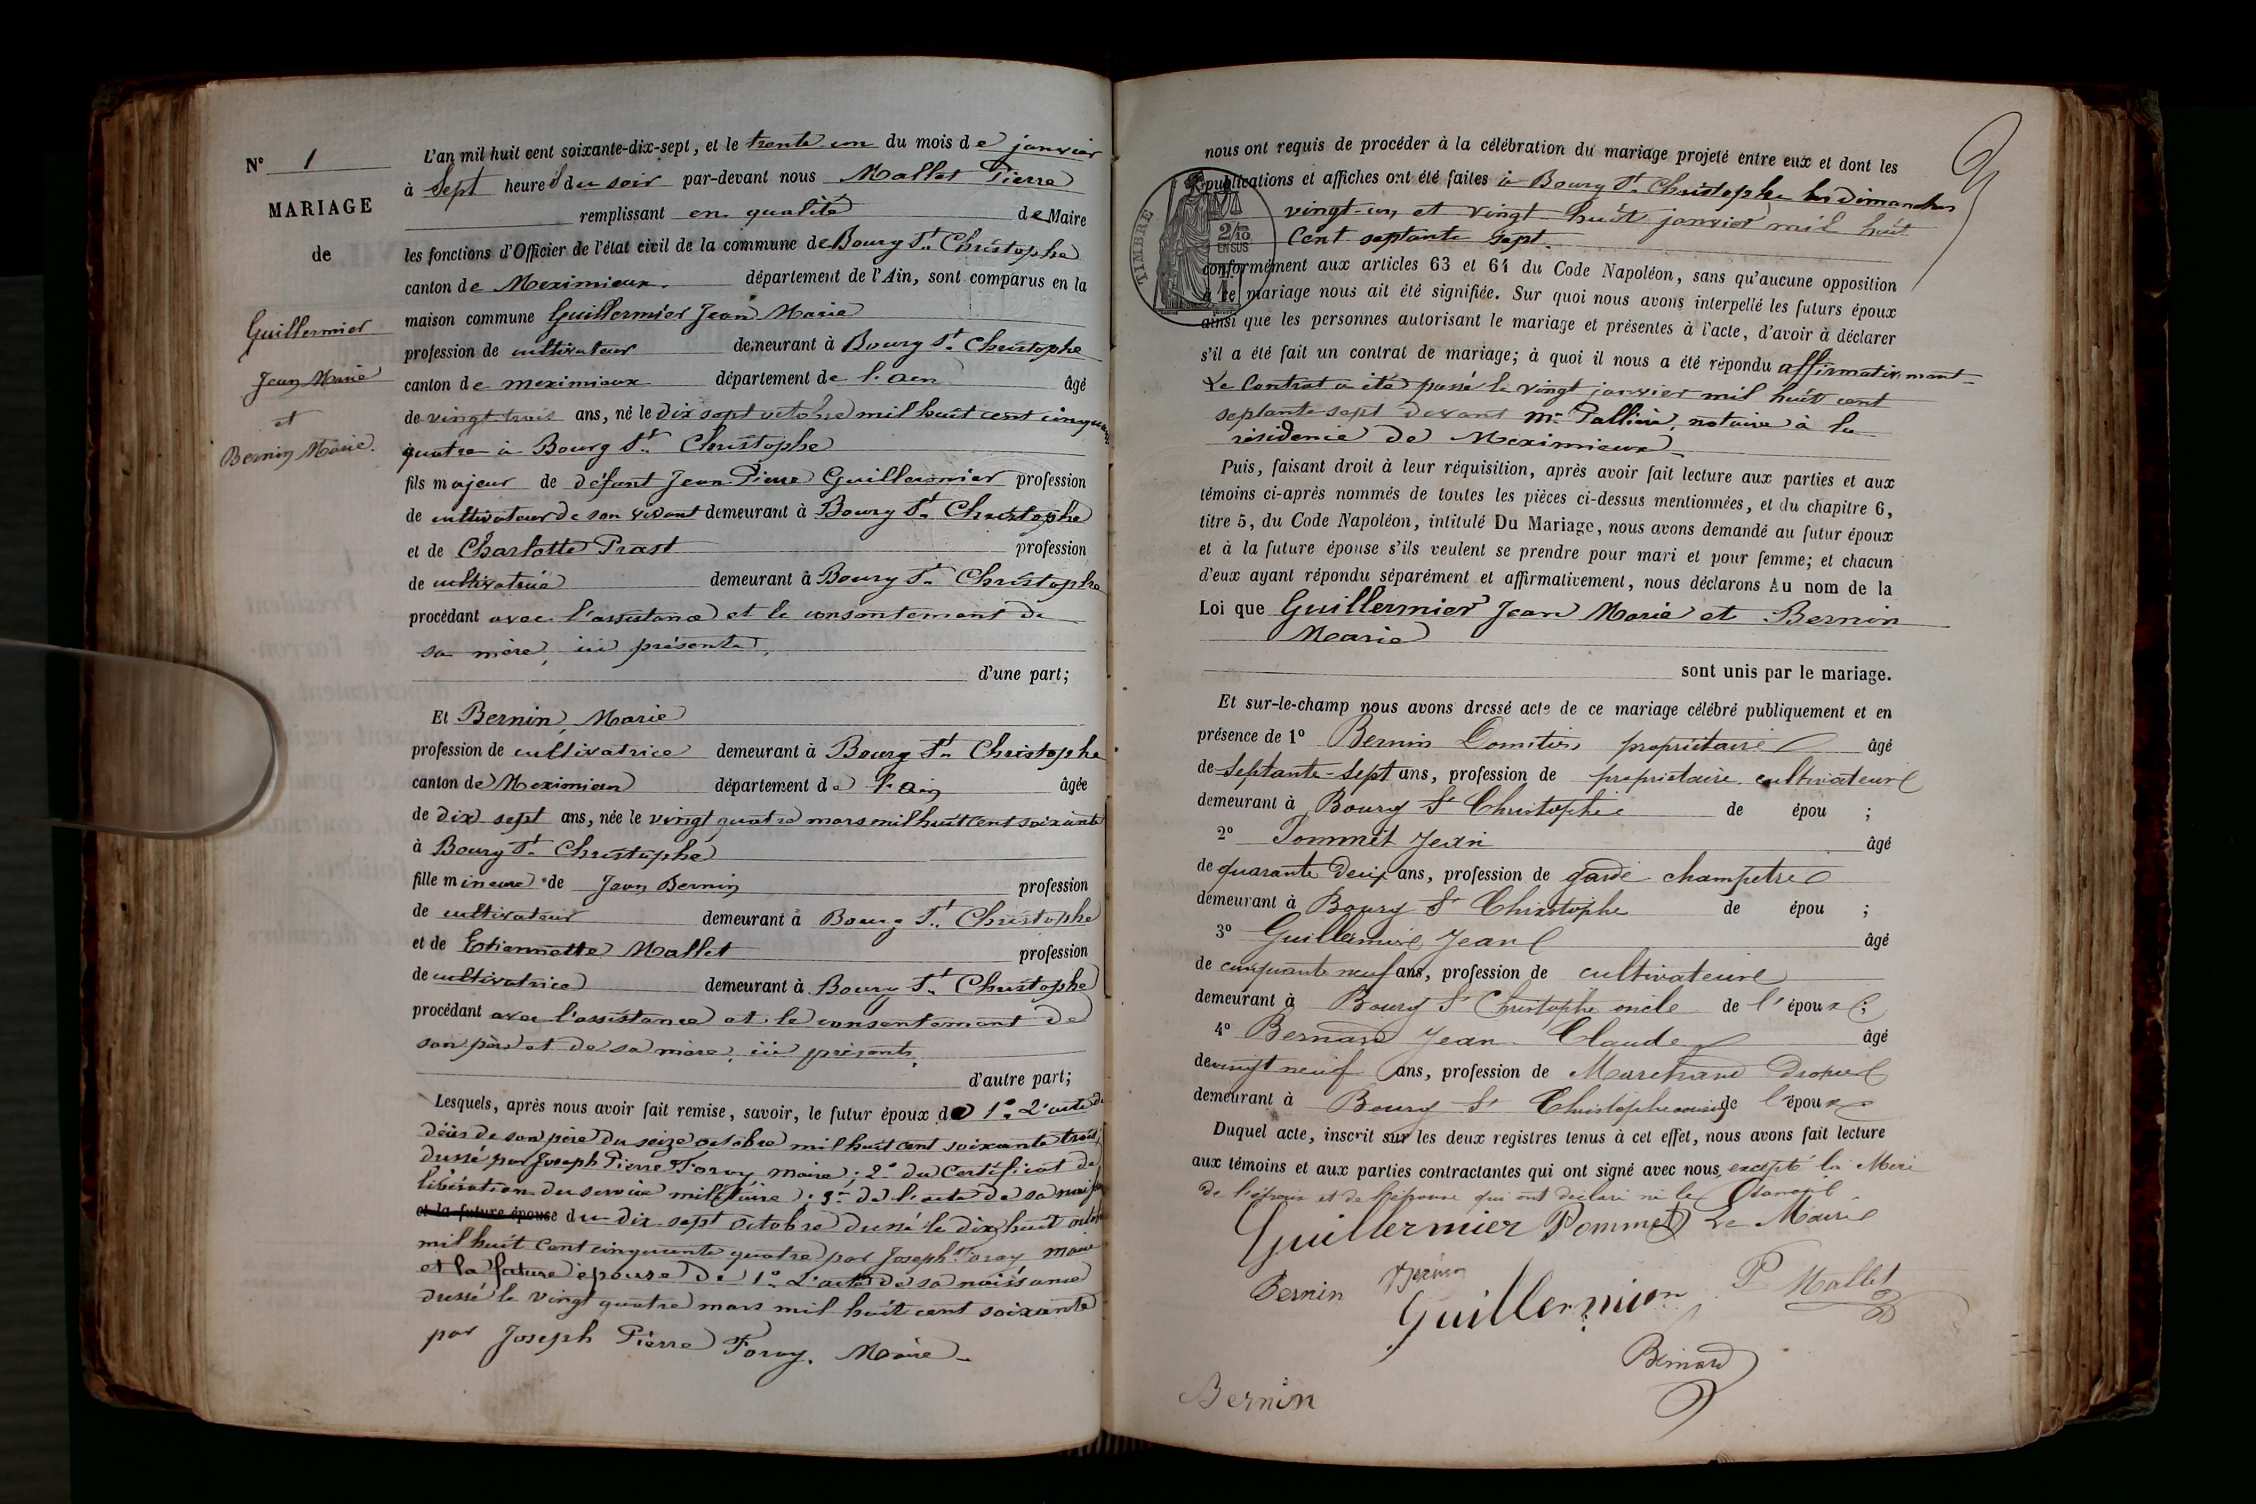 N° 1
MARIAGE
de
Guillermier
Jean Marie
et
Bernin Marie.
L'an mil huit cent soixante-dix-sept, et le trente un du mois de janvier
à Sept heures du soir par-devant nous Mallet Pierre
remplissant en qualité de Maire
les fonctions d'Officier de l'état civil de la commune de Bourg St. Christophe
canton de Meximieux. département de l'Ain, sont comparus en la
maison commune Guillermier Jean Marie
profession de cultivateur demeurant à Bourg St. Christophe
canton de meximieux département de l'ain âgé
de vingt trois ans, né le dix sept octobre mil huit cent cinquante
quatre à Bourg St. Christophe
fils majeur de défunt Jean Pierre Guillermier profession
de cultivateur de son vivant demeurant à Bourg St. Christophe
et de Charlotte Prast profession
de cultivatrice demeurant à Bourg St. Christophe
procédant avec l'assistance et le consentement de
sa mère, ici présente,
d'une part;
Et Bernin, Marie
profession de cultivatrice demeurant à Bourg St. Christophe
canton de Meximieux département de l'ain âgée
de dix sept ans, née le vingt quatre mars mil huit cent soixante
à Bourg St. Christophe
fille mineure de Jean Bernin profession
de cultivateur demeurant à Bourg St. Christophe
et de Etiennette Mallet profession
de cultivatrice demeurant à Bourg St. Christophe
procédant avec l'assistance et le consentement de
son père et de sa mère, ici présents,
d'autre part;
Lesquels, après nous avoir fait remise, savoir, le futur époux de 1° L'acte de
décès de son père du seize octobre mil huit cent soixante trois,
dressé par Joseph Pierre Foray, maire; 2° du Certificat de
libération du service militaire; 3° de l'acte de sa naissance
et la future épouse du dix sept octobre dressé le dix huit octobre
mil huit cent cinquante quatre par Joseph Foray, maire
et la future épouse de 1° L'acte de sa naissance
dressé le vingt quatre mars mil huit cent soixante
par Joseph Pierre Foray, Maire
nous ont requis de procéder à la célébration du mariage projeté entre eux et dont les
publications et affiches ont été faites à Bourg St. Christophe les dimanches
vingt-un et vingt-huit janvier mil huit
Cent septante sept.
TIMBRE
2/10 EN SUS
conformément aux articles 63 et 64 du Code Napoléon, sans qu'aucune opposition
à ce mariage nous ait été signifiée. Sur quoi nous avons interpellé les futurs époux
ainsi que les personnes autorisant le mariage et présentes à l'acte, d'avoir à déclarer
s'il a été fait un contrat de mariage; à quoi il nous a été répondu affirmativement
Le Contrat a été passé le vingt janvier mil huit cent
septante sept devant Me Pallière, notaire à la
résidence de Meximieux
Puis, faisant droit à leur réquisition, après avoir fait lecture aux parties et aux
témoins ci-après nommés de toutes les pièces ci-dessus mentionnées, et du chapitre 6,
titre 5, du Code Napoléon, intitulé Du Mariage, nous avons demandé au futur époux
et à la future épouse s'ils veulent se prendre pour mari et pour femme; et chacun
d'eux ayant répondu séparément et affirmativement, nous déclarons Au nom de la
Loi que Guillermier Jean Marie et Bernin
Marie
sont unis par le mariage.
Et sur-le-champ nous avons dressé acte de ce mariage célébré publiquement et en
présence de 1° Bernin propriétaire âgé
de septante-sept ans, profession de propriétaire cultivateur
demeurant à Bourg St Christophe de épou ;
2° Pommet Jean âgé
de quarante deux ans, profession de garde champetre
demeurant à Bourg St Christophe de épou ;
3° Guillermier Jean âgé
de cinquante neuf ans, profession de cultivateur
demeurant à Bourg St Christophe oncle de l'époux ;
4° Bernard Jean Claude âgé
de vingt neuf ans, profession de Marchand Drapier
demeurant à Bourg St Christophe cousin de l'époux
Duquel acte, inscrit sur les deux registres tenus à cet effet, nous avons fait lecture
aux témoins et aux parties contractantes qui ont signé avec nous, excepté la Mère
de l'époux et de l'épouse qui ont déclaré ne le savoir
Guillermier Pommet Le Maire
Bernin Bernin P Mallet
Guillermier
Bernard
Bernin